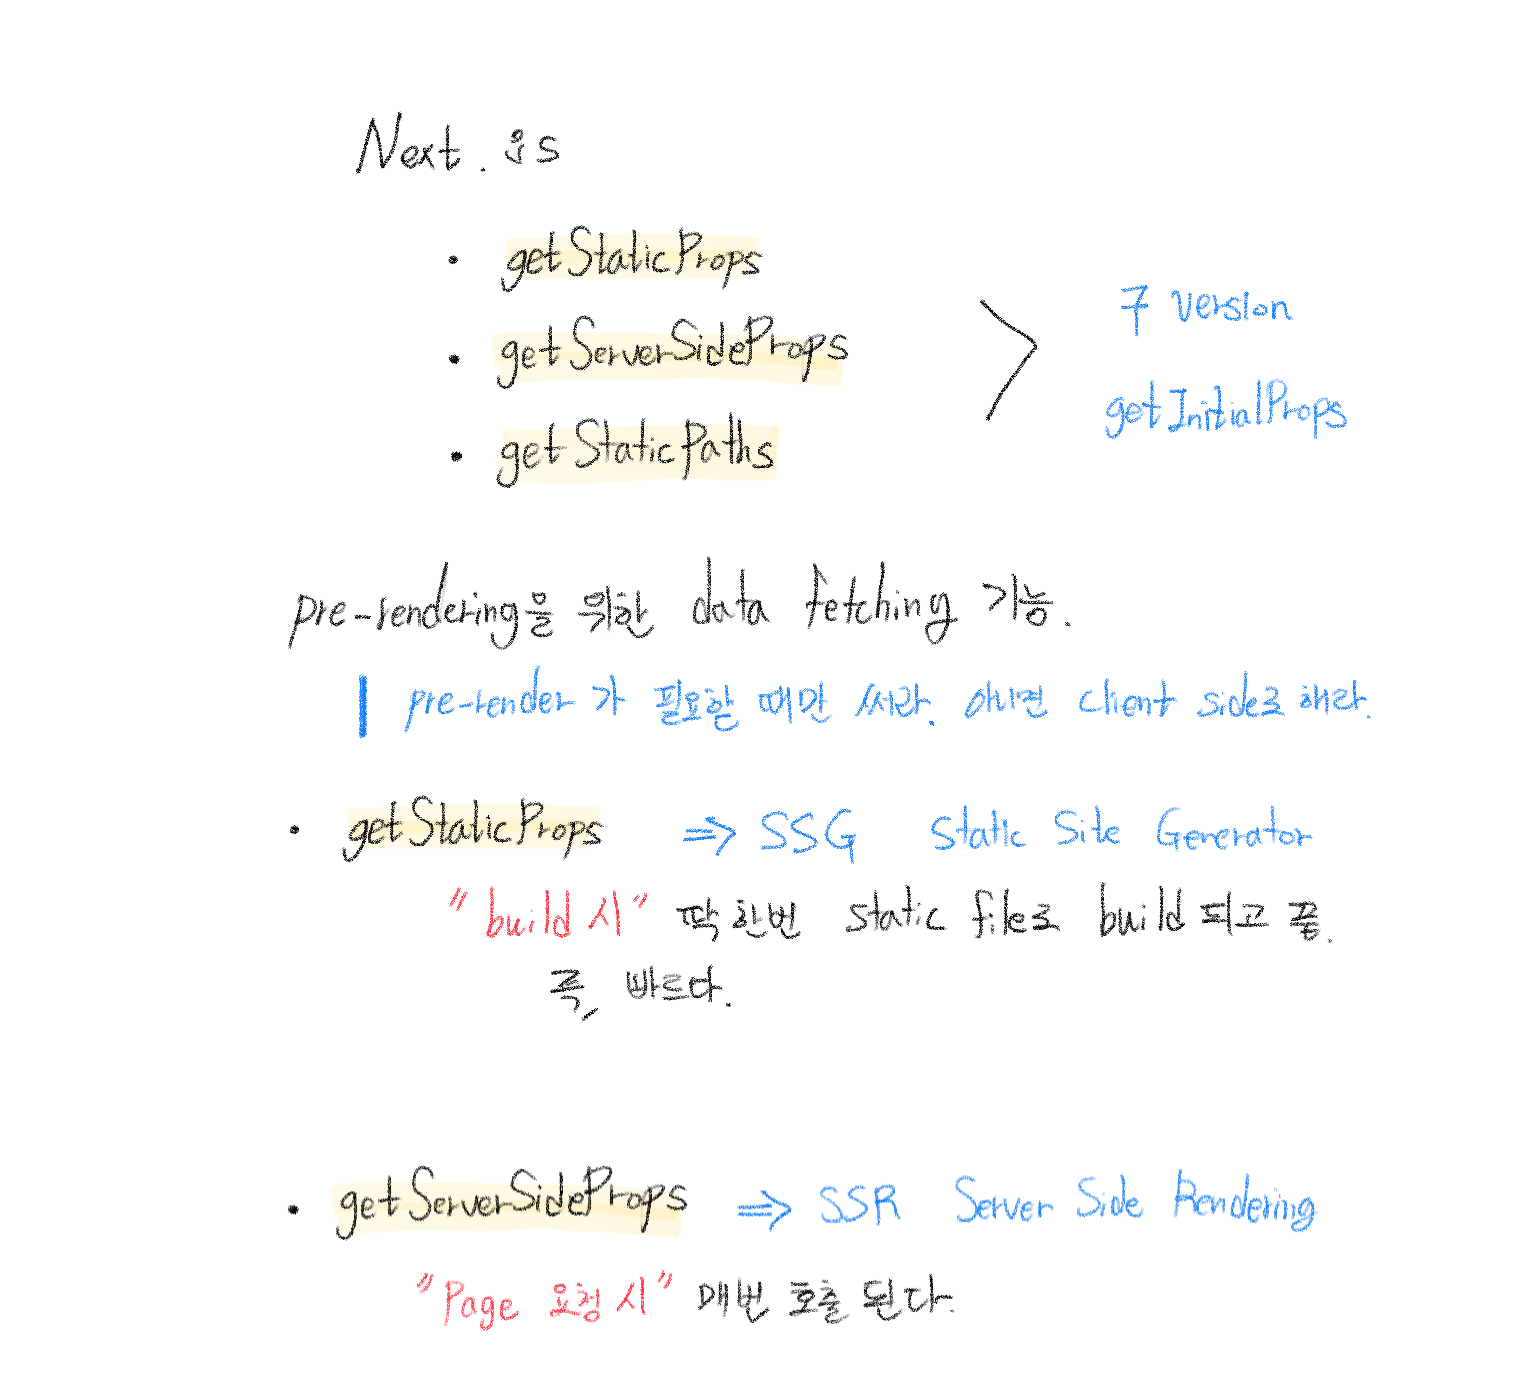 Next.js
• getStaticProps
• getServerSideProps
• getStaticPaths
> 7 version
getInitialProps
pre-rendering을 위한 data fetching 기능.
pre-render가 필요할 때만 써라. 아니면 client side로 해라.
• getStaticProps ⇒ SSG Static Site Generator
"build 시" 딱 한번 static file로 build 되고 끝.
즉, 빠르다.
• getServerSideProps ⇒ SSR Server Side Rendering
"Page 요청 시" 매번 호출 된다.